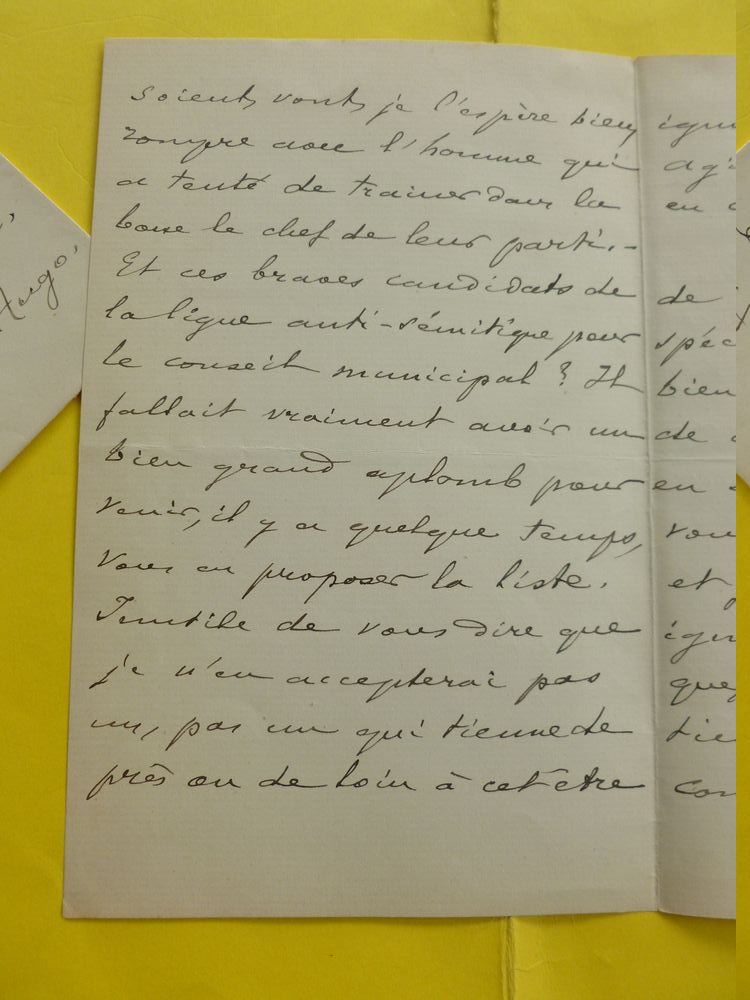 soient, vont, je l'espère bien,
rompre avec l'homme qui
a tenté de trainer dans la
boue le chef de leur parti. -
Et ces braves candidats de
la ligue anti-sémitique pour
le conseil municipal ? Il
fallait vraiment avoir un
bien grand aplomb pour
venir, il y a quelque temps,
vous en proposer la liste.
Inutile de vous dire que
je n'en accepterai pas
un, pas un qui tienne de
près ou de loin à cet être
en
de
bien
de
en
et
Hugo,